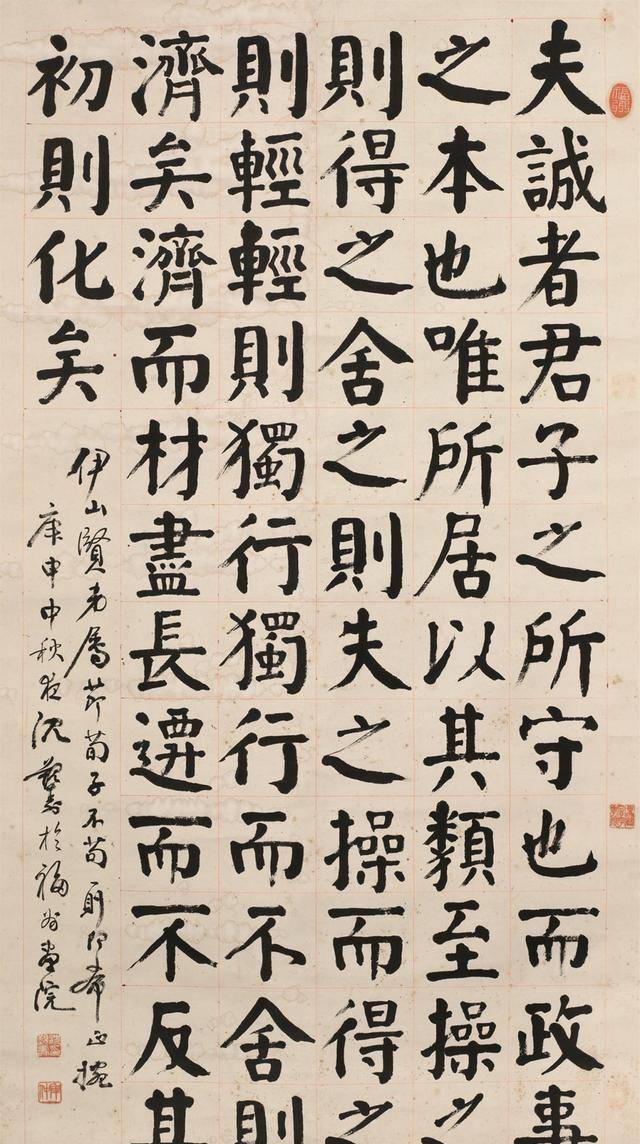 夫誠者君子之所守也而政事
之本也唯所居以其類至操之
則得之舍之則失之操而得之
則輕輕則獨行獨行而不舍則
濟矣濟而材盡長遷而不反其
初則化矣
伊山賢弟屬節荀子不苟則即希正捥
庚申中秋夜沈覲壽於福州畫院